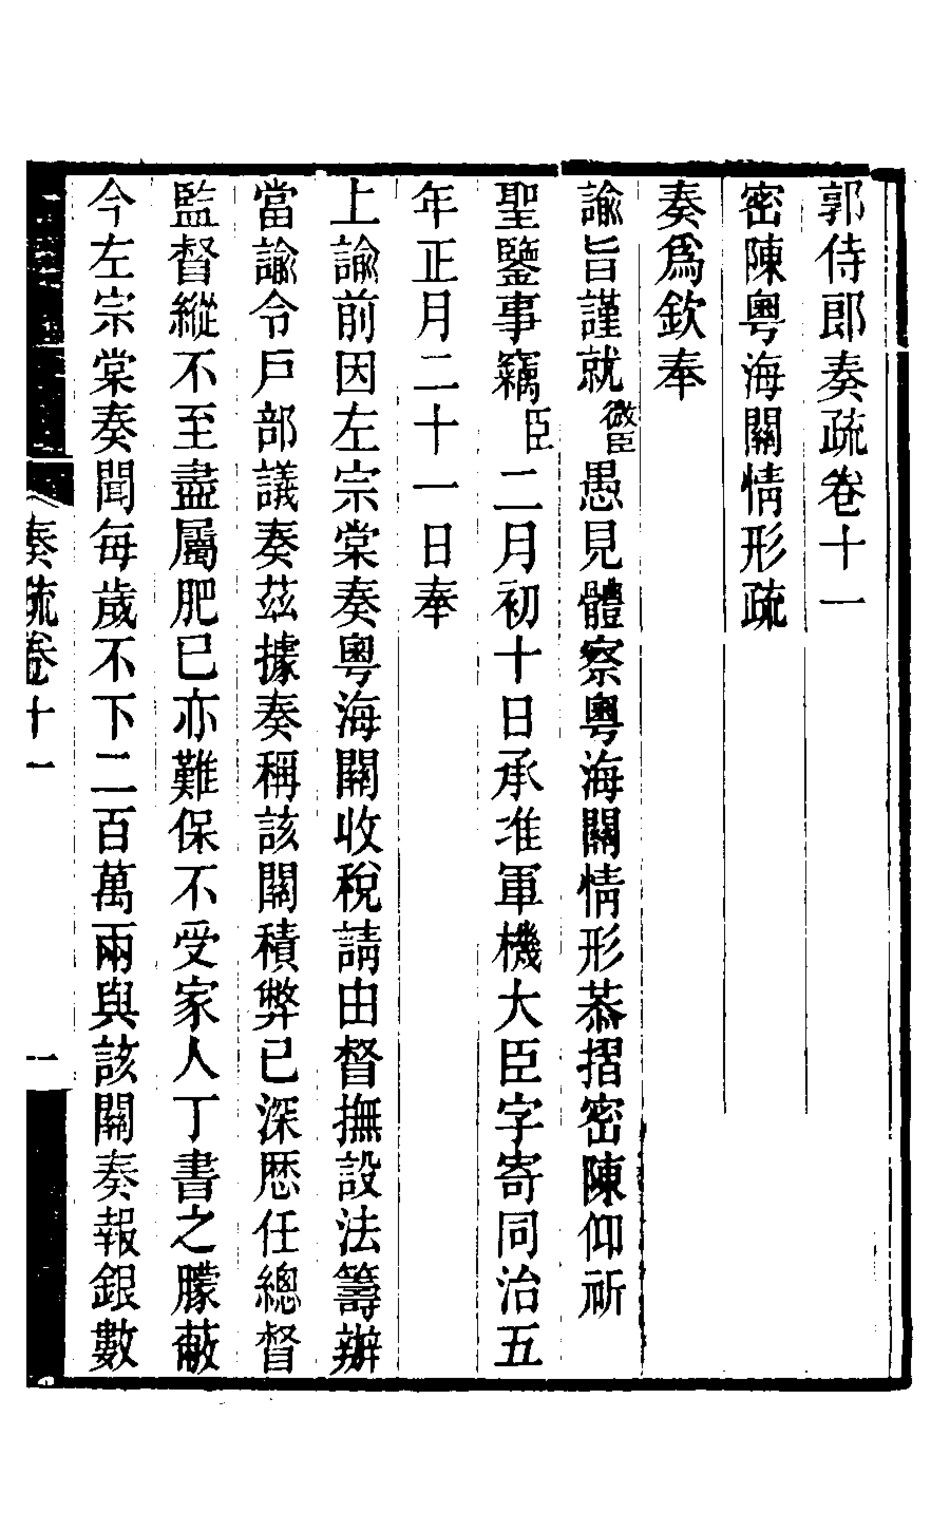 郭侍郎奏疏卷十一
密陳粵海關情形疏
奏爲欽奉
諭旨謹就微臣愚見體察粵海關情形恭摺密陳仰祈
聖鑒事竊臣二月初十日承准軍機大臣字寄同治五
年正月二十一日奉
上諭前因左宗棠奏粵海關收稅請由督撫設法籌辦
當諭令戶部議奏茲據奏稱該關積弊已深歷任總督
監督縱不至盡屬肥已亦難保不受家人丁書之朦蔽
今左宗棠奏聞每歲不下二百萬兩與該關奏報銀數
奏疏卷十一
一